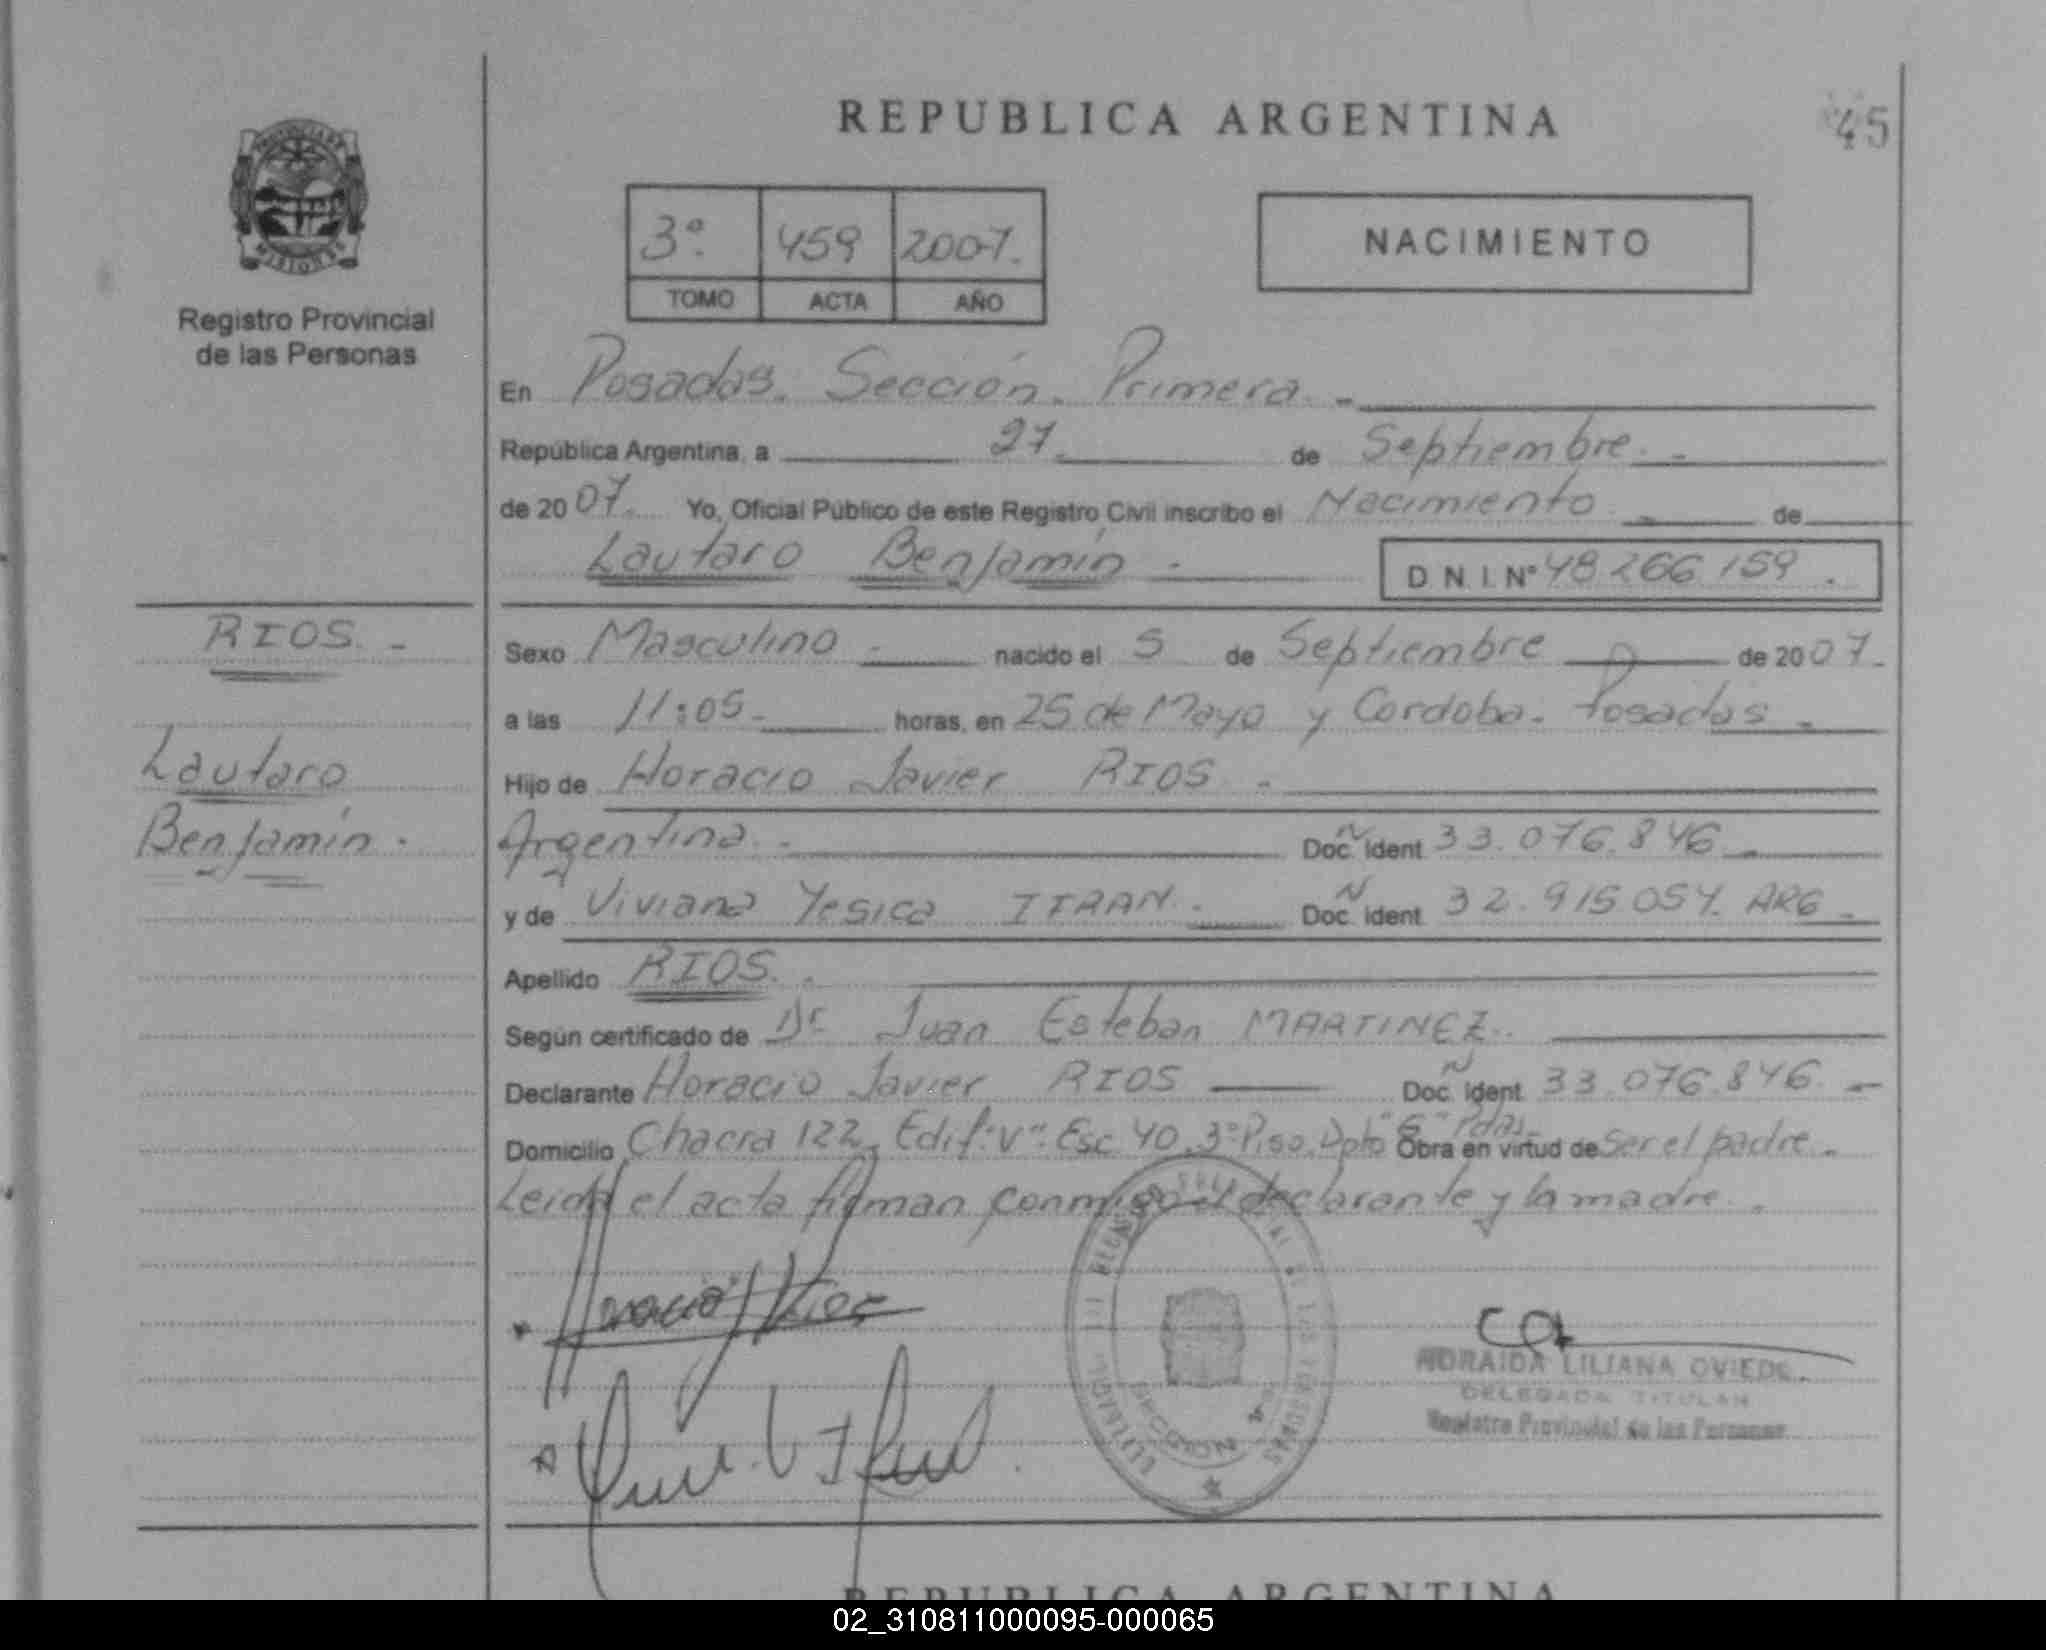 REPUBLICA ARGENTINA
45
PROVINCIA DE
MISIONES
Registro Provincial
de las Personas
3º. 459 2007.
TOMO ACTA AÑO
NACIMIENTO
En Posadas. Sección. Primera. -
República Argentina, a 27. de Septiembre. -
de 2007. Yo, Oficial Público de este Registro Civil inscribo el Nacimiento. - de
Lautaro Benjamín. - D.N.I. Nº 48 266 159.
RIOS. -
Lautaro
Benjamín.
Sexo Masculino - nacido el 5 de Septiembre de 2007.
a las 11:05. horas, en 25 de Mayo y Cordoba. Posadas -
Hijo de Horacio Javier RIOS. -
Argentina. - Doc. Ident. 33.076.846 -
y de Viviana Yesica Doc. Ident. 32.915.054. ARG -
Apellido RIOS.
Según certificado de Dr Juan Esteban MARTINEZ.
Declarante Horacio Javier RIOS Doc. Ident. 33.076.846. -
Domicilio Chacra 122, Edif. "V". Esc. 40. 3º Piso. Dpto "G" Pdas. Obra en virtud de Ser el padre. -
Leida el acta firman conmigo el declarante y la madre.
LILIANA OVIEDO
DELEGADA TITULAR
Registro Provincial de las Personas
REPUBLICA ARGENTINA
02_310811000095-000065